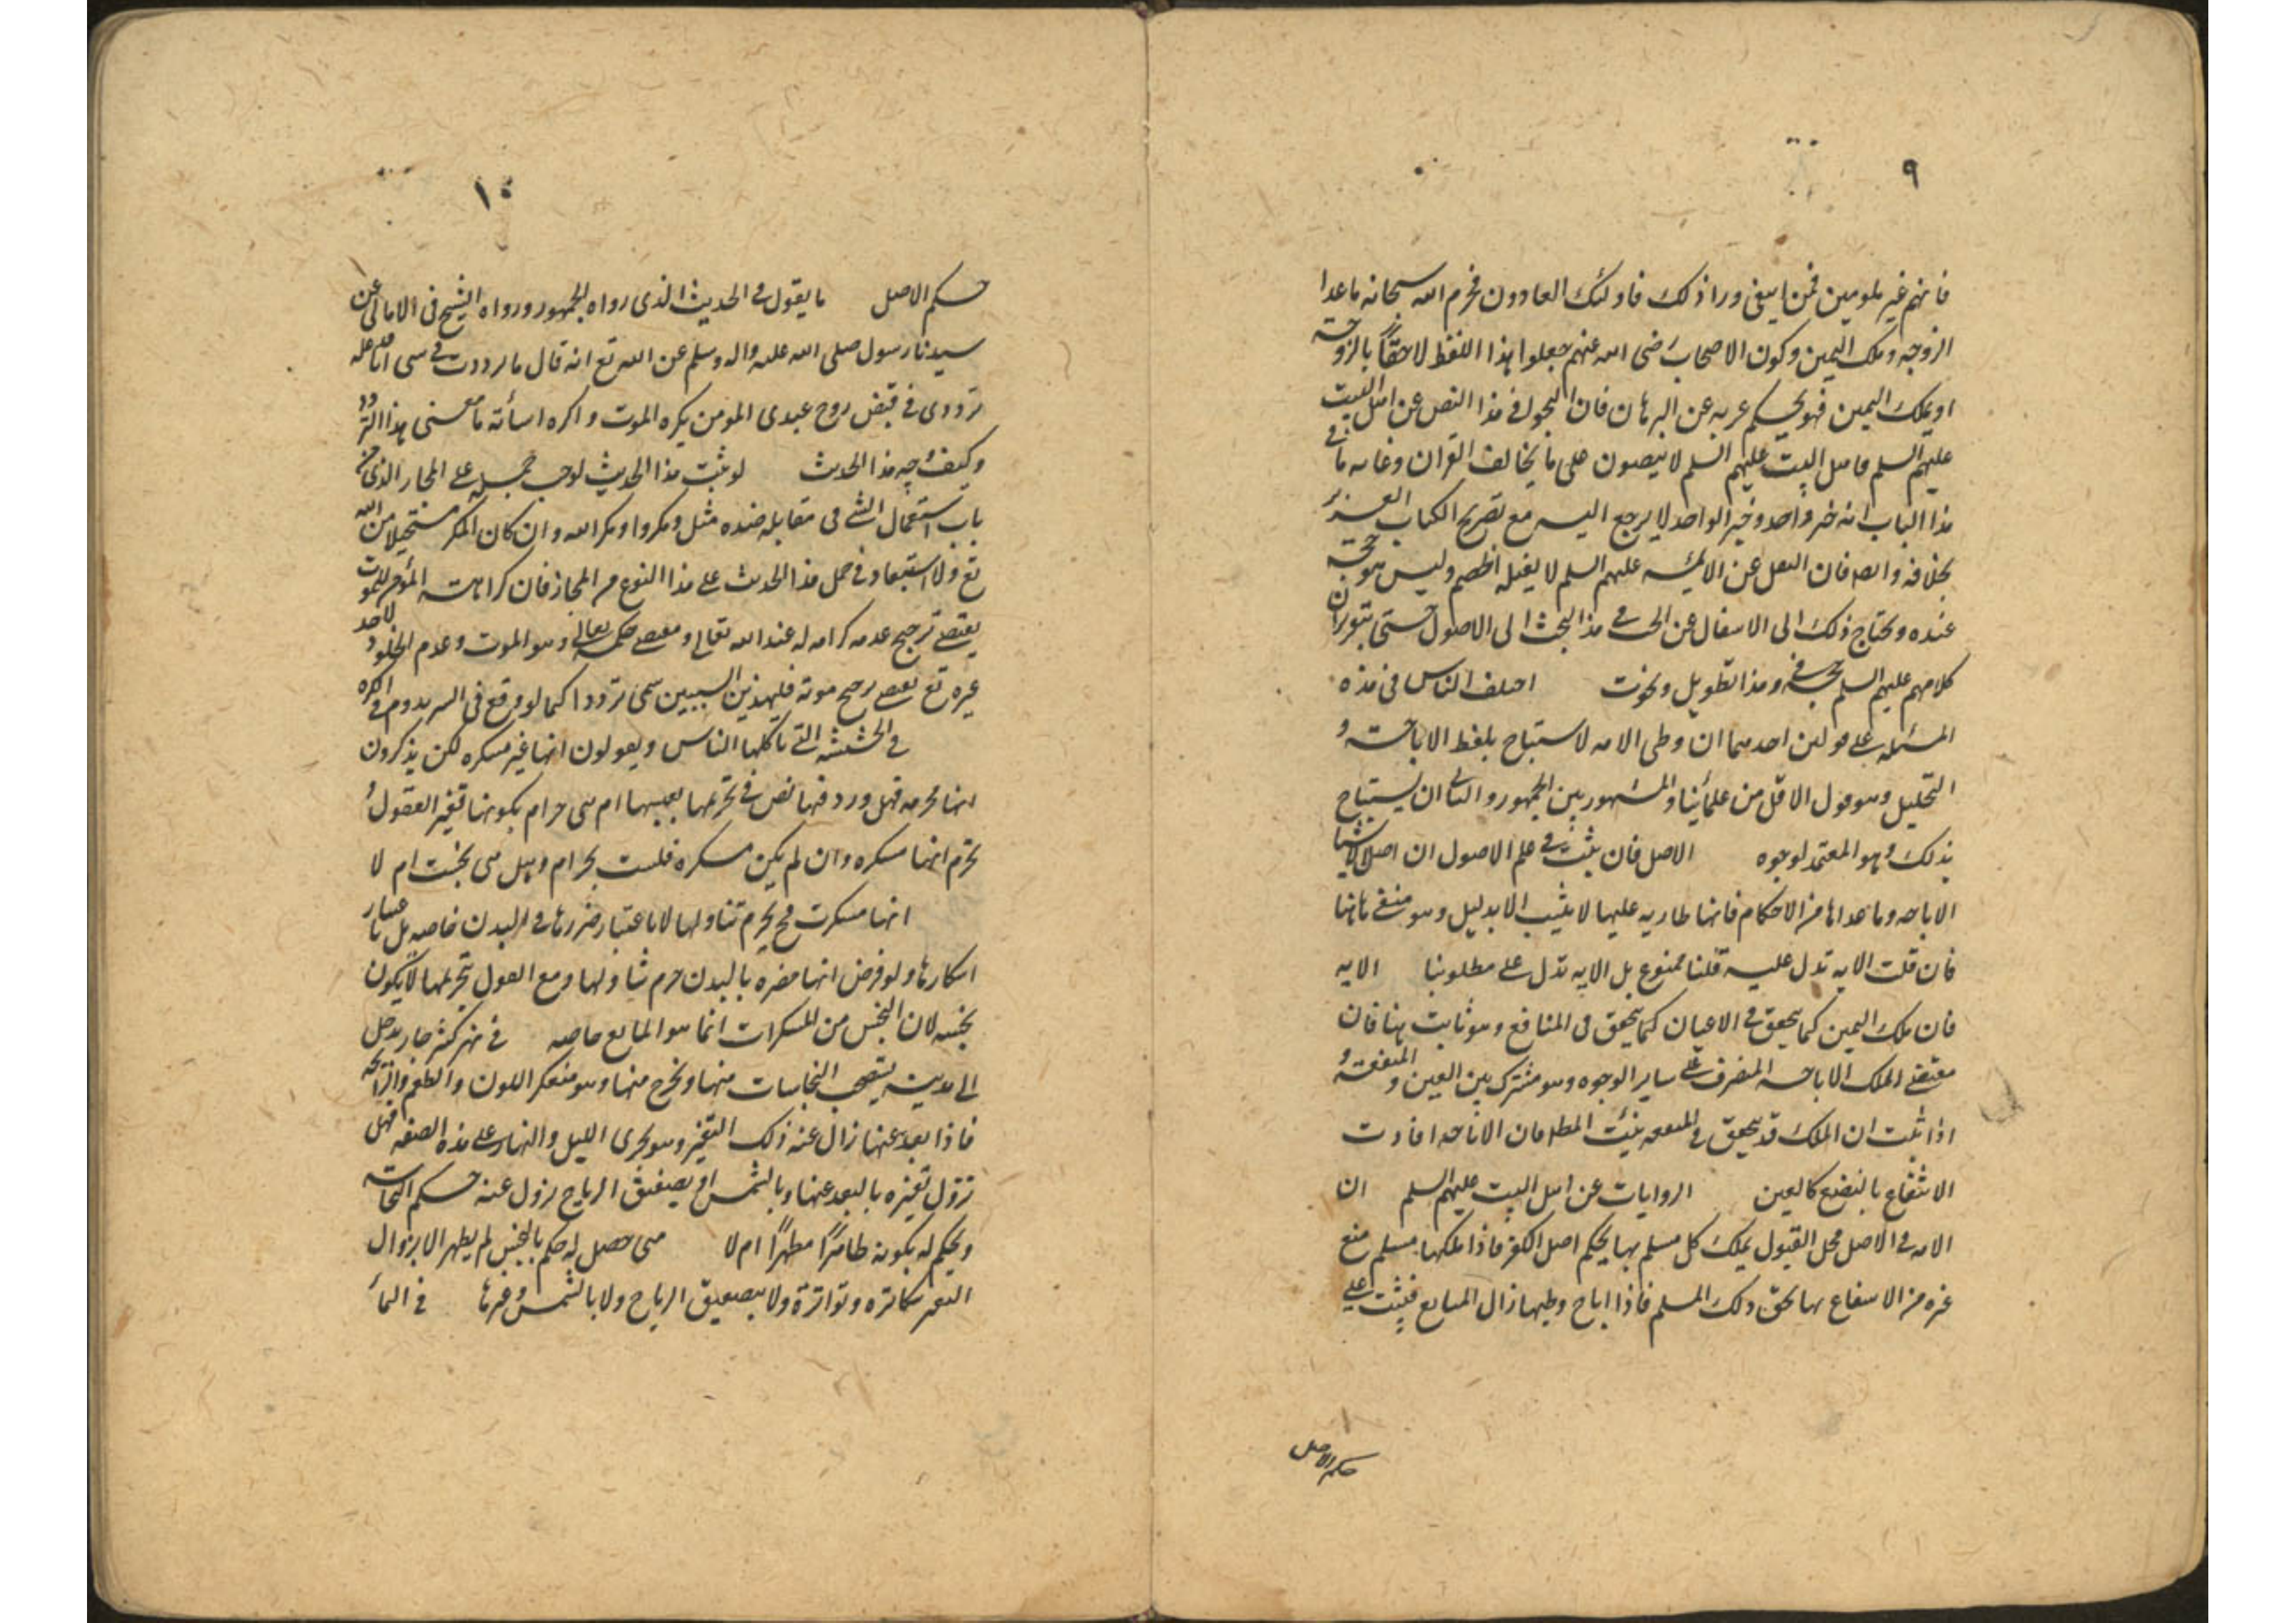 ٩
فانهم غير ملومين فمن ابتغى وراء ذلك فاولئك العادون فحرم الله سبحانه ماعدا
الزوجه وملك اليمين وكون الاصحاب رضى الله عنهم جعلوا هذا اللفظ لاحقاً بالزوجة
او بملك اليمين فهو تحكم عريه عن البرهان فان التجول فى هذا النص عن اهل البيت
عليهم السلم فاهل البيت عليهم السلم لا ينصون على ما يخالف القران وغايه ما فى
هذا الباب انه خبر واحد وخبر الواحد لا يرجع اليه مع تصريح الكتاب العزيز
بخلافه وايضا فان النقل عن الائمه عليهم السلم لا يقبله الخصم وليس هو حجة
عنده ويحتاج ذلك الى الانتقال عن البحث فى هذا البحث الى الاصول حتى يتقرر ان
كلامهم عليهم السلم حجة وهذا تطويل اختلف الناس فى هذه
المسئله على قولين احدهما ان وطى الامه لا يستباح بلفظ الاباحة و
التحليل وهو قول الاقل من علمائنا والمشهور بين الجمهور والثانى ان يستباح
بذلك وهو المعتمد لوجوه الاصل فان يثبت فى علم الاصول ان اصل الاشيا
الاباحه وما عداها من الاحكام فانها طاريه عليها لا يثبت الا بدليل وهو منفى هاهنا
فان قلت الايه تدل عليه قلنا ممنوع بل الايه تدل على مطلوبنا الايه
فان ملك اليمين كما يتحقق فى الاعيان كما يتحقق فى المنافع وهو ثابت هنا فان
مقتضى الملك الاباحه التصرف على ساير الوجوه وهو مشترك بين العين والمنفعة و
اذا ثبت ان الملك قد يتحقق فى المنفعه يثبت المط فان الاباحه افادت
الانتفاع بالبضع كالعين الروايات عن اهل البيت عليهم السلم ان
الامه فى الاصل محل القبول يملك كل مسلم بها بحكم اصل الكفر فاذا ملكها مسلم منع
غيره من الانتفاع بها بحق ذلك المسلم فاذا اباح وطيها زال المانع فيثبت على
حكم الاصل
١٠
حكم الاصل ما يقول فى الحديث الذى رواه الجمهور ورواه الشيخ فى الامالى عن
سيدنا رسول صلى الله عليه واله وسلم عن الله تع انه قال ما ترددت فى شى انا فاعله
ترددى فى قبض روح عبدى المومن يكره الموت واكره اسأته ما معنى هذا التردد
وكيف وجه هذا الحديث لو ثبت هذا الحديث لوجب حمله على المجاز الذى من
باب استعمال الشئ فى مقابله ضده مثل ومكروا ومكر الله وان كان المكر مستحيلا من الله
تع ولا استبعاد فى حمل هذا الحديث على هذا النوع من المجاز فان كراهته المؤمن للموت
يقتضى ترجيح عدمه كرامه له عند الله تعالى ومقتضى حكمه تعالى وهو الموت وعدم الخلود لاحد
غيره تع يقتضى ترجيح موته فلهذين السببين سمى ترددا كما لو وقع فى
فى الحشيشه التى ياكلها الناس ويقولون انها غير مسكره لكن يذكرون
انها محرمه فهل ورد فيها نص فى تحريمها بعينها ام هى حرام بكونها تغير العقول و
تحرم انها مسكره وان لم يكن مسكره فليست بحرام وهل هى نجست ام لا
انها مسكرت فح يحرم تناولها لا باعتبار ضررها فى البدن خاصه بل باعتبار
اسكارها ولو فرض انها مضره بالبدن حرم تناولها ومع القول بتحريمها لا يكون
نجسه لان النجس من المسكرات انما هو المايع خاصه فى نهر كثير جار يدخل
الى مدينه يصحب النجاسات منها ويخرج منها وهو متعكر اللون والطعم والرائحه
فاذا بعد عنها زال عنه ذلك التغير وهو يجرى الليل والنهار على هذه الصفه فهل
تزول تغيره بالبعد عنها وبالشمس او بصفق الرياح يزول عنه حكم النجاسه
ويحكم له بكونه طاهراً مطهراً ام لا متى حصل له حكم بالنجس لم يطهر الا بزوال
التغير بتكاثره وتواتره ولا بتصفيق الرياح ولا بالشمس وغيرها فى المأ